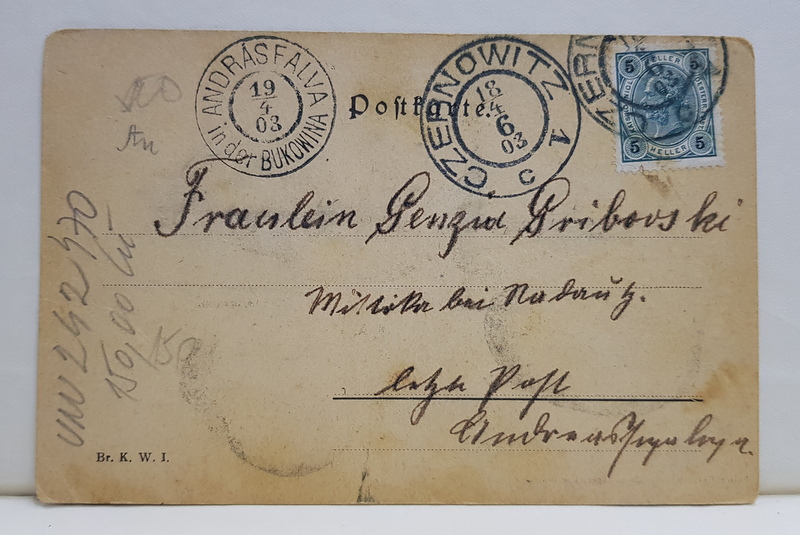 ANDRÁSFALVA in der BUKOWINA
19
4
03
Postkarte.
CZERNOWITZ 1 c
18
4
6
03
CZERN
5 HELLER 5
5 HELLER 5
An
Fraulein Genzia Gribovski
bei Radautz.
letzte Post
Andreasfalva.
150,00
15
Br. K. W. I.